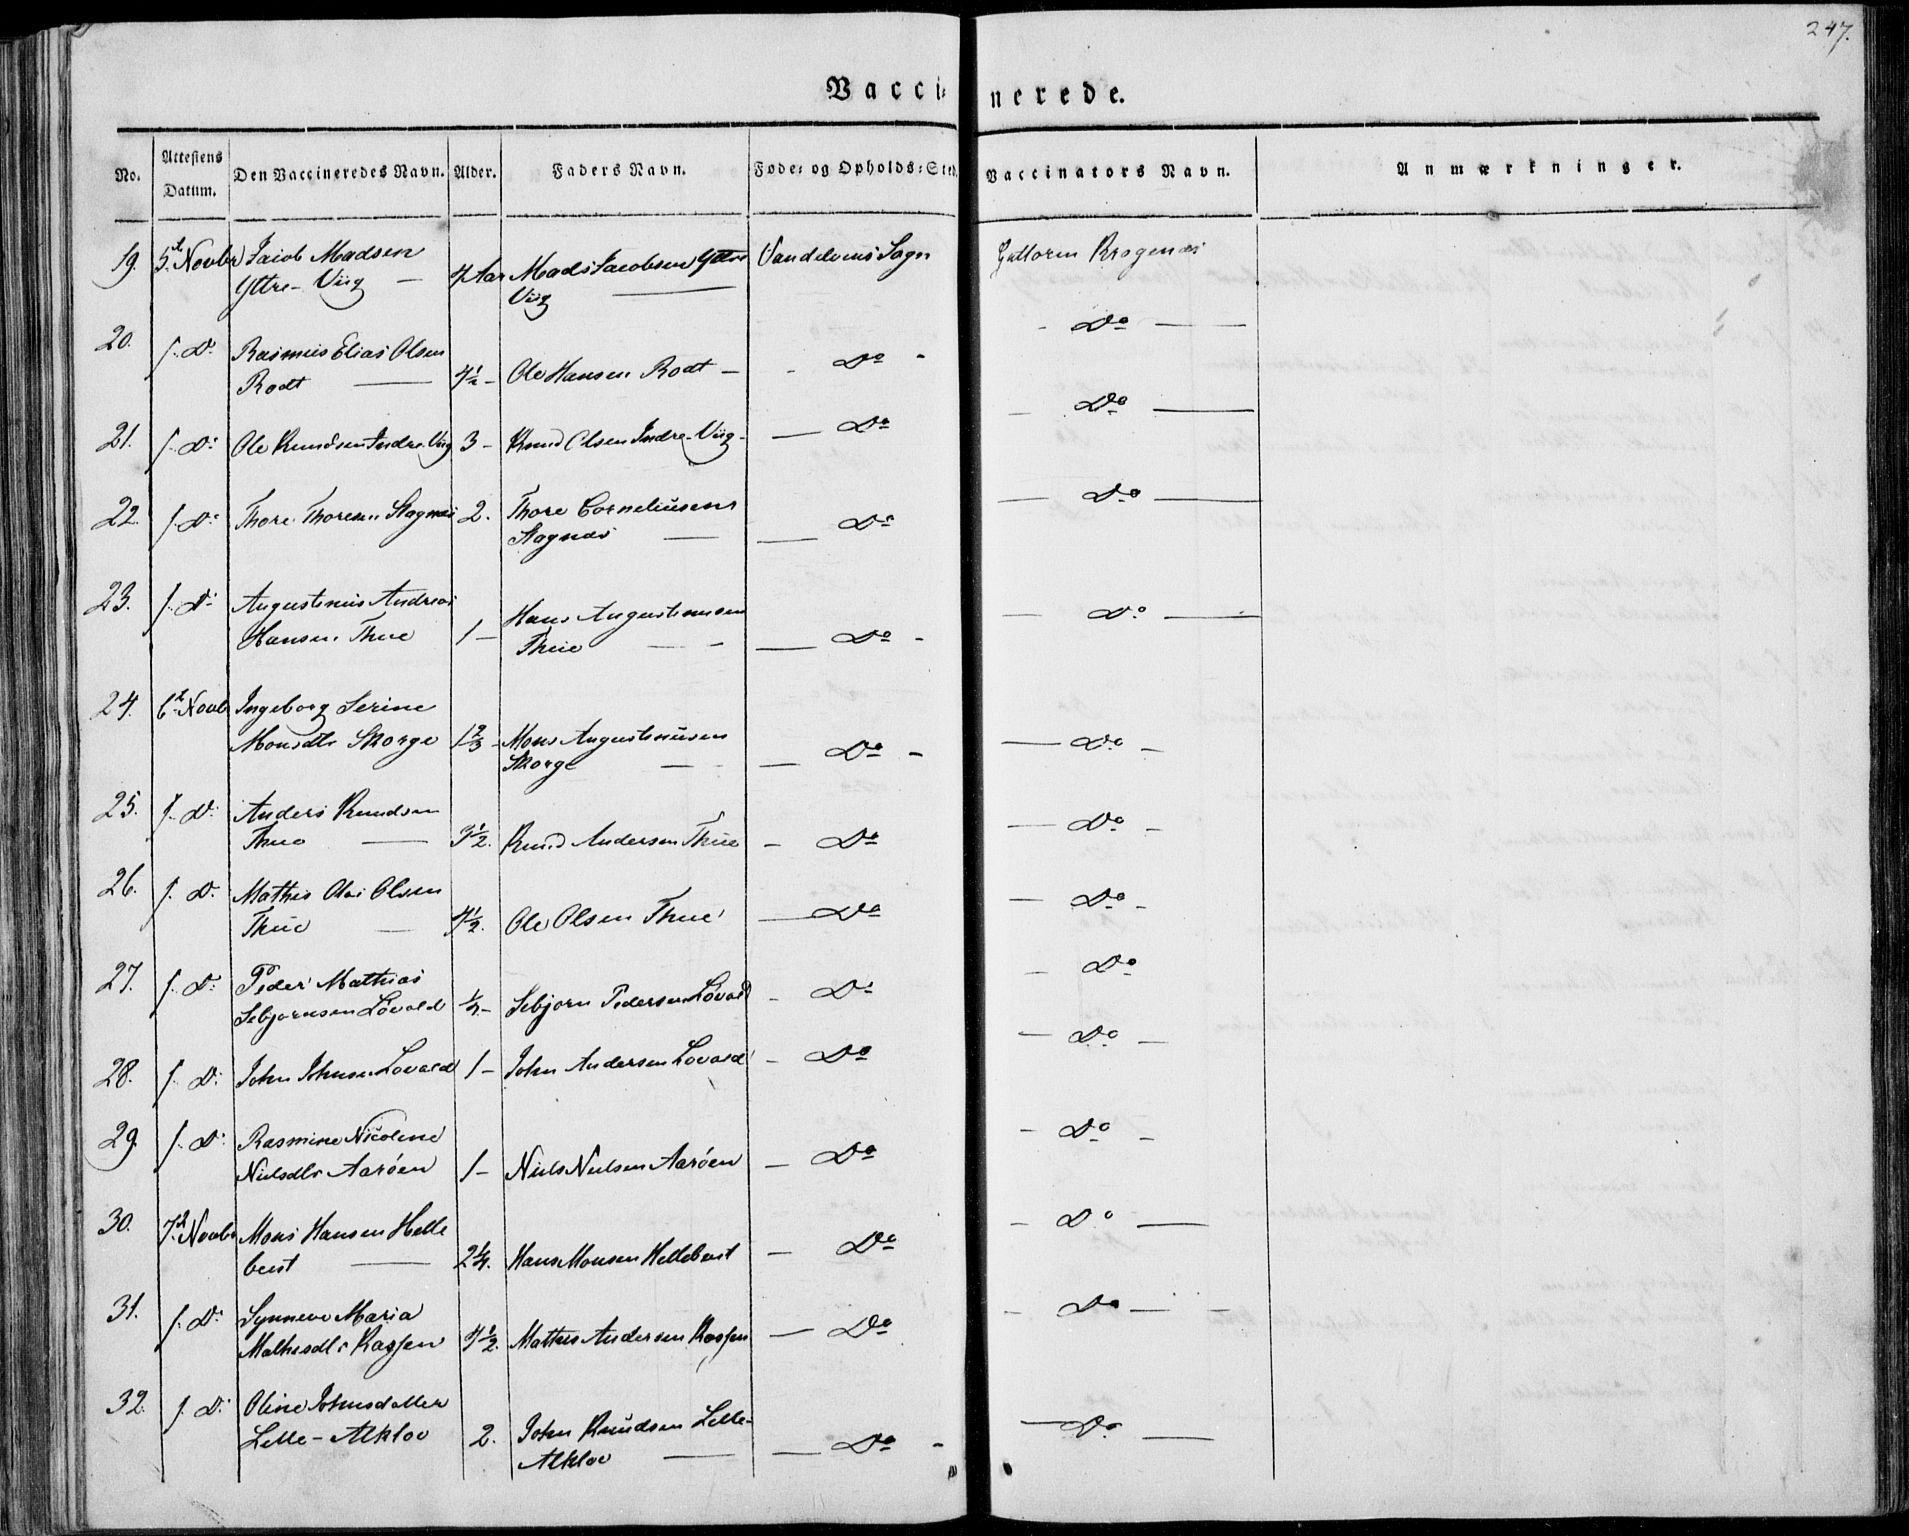 247.
Vaccinerede.
No. Attestens Datum. Den Vaccineredes Navn. Alder. Faders Navn. Føde- og Opholds-Sted. Vaccinators Navn. Anmærkninger.
19. 5t Novbr Jacob Madsen 4 Aar Mads Jacobsen Yttre Vandelvens Sogn Guttorm Krogenæs
Yttre-Viig — Viig —
20. f. Do Rasmus Elias Olsen - Do —
Rodt — 4½ - Ole Hansen Rodt — - Do -
21. f. Do Ole Knudsen Indre-Viig 3 - Knud Olsen Indre-Viig - — Do — Do —
22. f. Do Thore Thoresen Stagnæs 2. Thore Corneliusens — Do —
Stagnæs — — Do
23. f. Do Augustinus Andreas Hans Augustinusen — Do —
Hansen Thue 1 - Thue — — Do -
24. 6t Novb Ingeborg Serine
Monsdtr Skorge 1⅔ - Mons Augustinusen — Do - — Do -
Skorge —
25. f. Do Anders Knudsen — Do -
Thue — 3½. Knud Andersen Thue - Do
26. f. Do Mathis Olai Olsen — Do -
Thue — 4½. Ole Olsen Thue — Do
27. f. Do Peder Mathias - Do
Sebjørnsen Løvold ¼ - Sebjørn Pedersen Løvold - Do
28. f. Do John Johnsen Lovold 1 - John Andersen Lovold - Do — Do —
29. f. Do Rasmine Nicoline - Do -
Nielsdtr Aarøen 1 - Niels Nielsen Aarøen — Do
30. 7d Novbr Mons Hansen Helle - Do —
bust — 2¼. Hans Monsen Hellebust — Do
31. f. Do Synneve Maria - Do — -
Mathisdtr Kassen 4½. Mathis Andersen Kassen — Do
32. f. Do Oline Johnsdatter
Lille-Alklov 2. John Knudsen Lille- — Do - — Do —
Alklov —